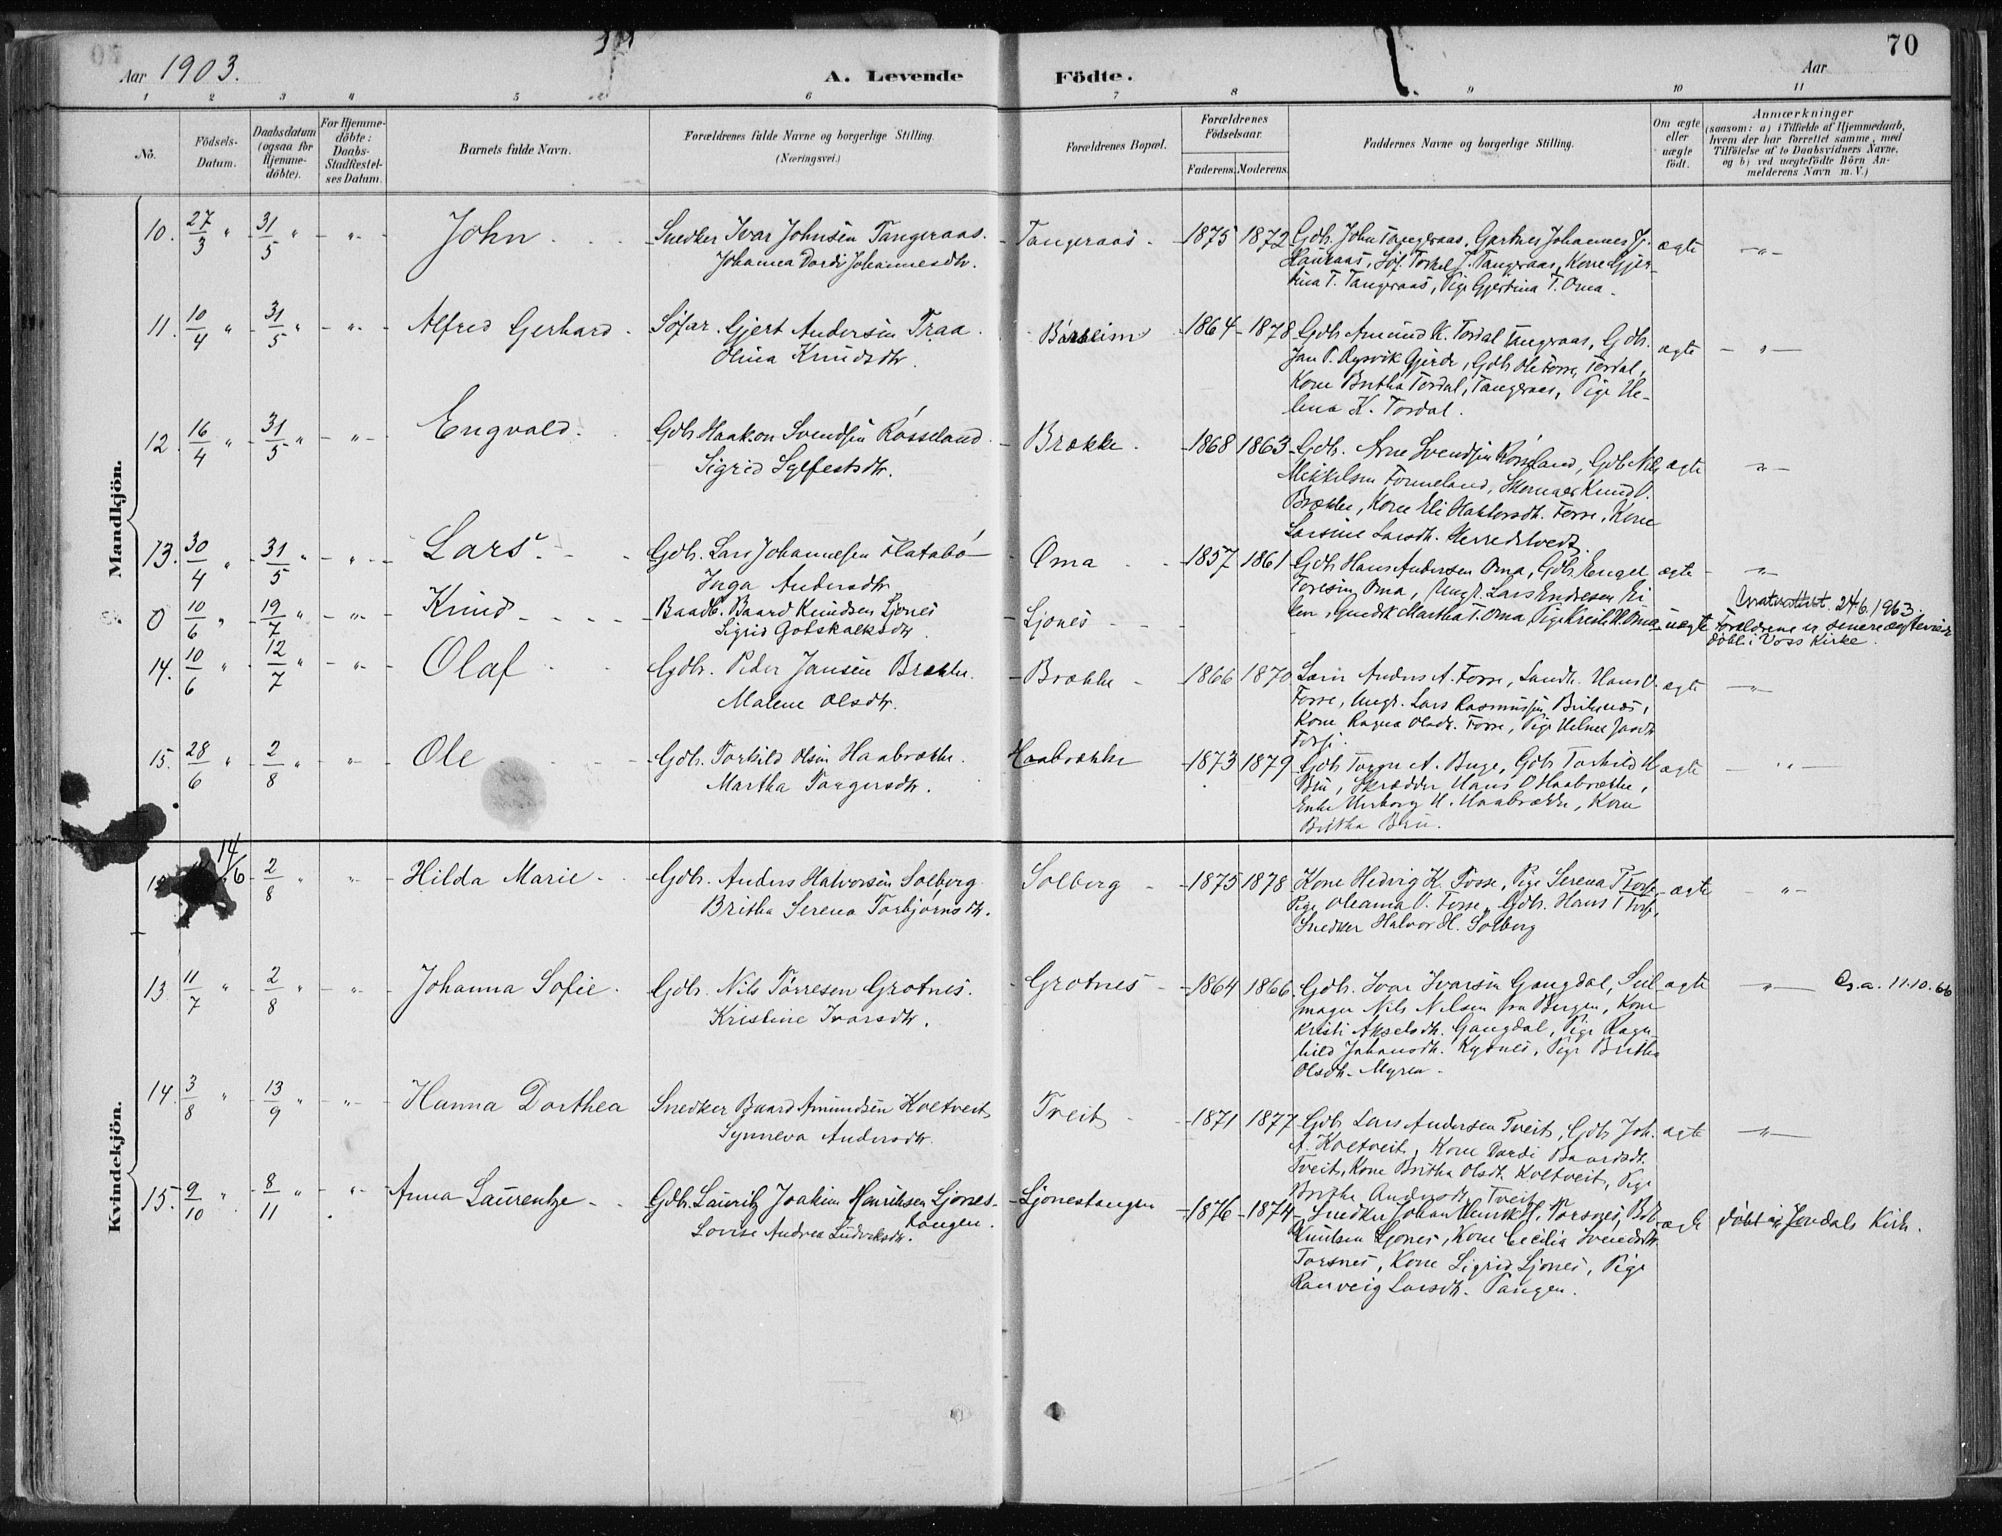 70
Aar 1903.
A. Levende Födte.
Aar
1 2 3 4 5 6 7 8 9 10 11
No.
Födsels-Datum.
Daabsdatum (ogsaa for Hjemme-döbte).
For Hjemme-döbte: Daabs-Stadfæstel-ses Datum.
Barnets fulde Navn.
Forældrenes fulde Navne og borgerlige Stilling.
(Næringsvei.)
Forældrenes Bopæl.
Forældrenes Födselsaar.
Faderens. Moderens.
Faddernes Navne og borgerlige Stilling.
Om ægte eller uægte födt.
Anmærkninger
(saasom: a) i Tilfælde af Hjemmedaab,
hvem der har forrettet samme, med
Tilföielse af to Daabsvidners Navne,
og b) ved uægtefödte Börn An-
melderens Navn m.V.)
Mandkjön.
10. 27/3 " 31/5 " - " - John Snedker Ivar Johnsen Tangeraas. Tangeraas 1875 1872 Gdb. John Tangeraas, Gartner Johannes
Johanna Dordi Johannesdtr. Tangeraas, Kone Gjer-
tina T. Tangeraas, Pige Gjertina T. Oma. ægte - " -
11. 10/4 " 31/5 " - " - Alfred Gerhard Søfar. Gjert Andersen Traa. 1864 1878 Gdb. Amund K. Tordal Tangeraas, Gdb. ægte - " -
Olina Knudsdtr. Jan P. Rysvik Gjerde, Gdb. Ole Forre, Tordal,
Kone Britha Tordal, Tangeraas, Pige He-
lena K. Tordal.
12. 16/4 " 31/5 " - " - Engvald. Gdb. Haakon Svendsen Røsseland Brække. 1868 1863 Gdb. Arne Svendsen Røsseland, Gdb. Nils ægte - " -
Sigrid Sylfestsdtr. Mikkelsen Fonneland, Skomager Knud O.
Brække, Kone Eli Haktorsdtr. Forre, Kone
Larsine Larsdtr. Herredstvedt
13. 30/4 " 31/5 " - " - Lars. Gdb. Lars Johannesen Flatabø Oma 1857 1861 Gdb. Hans Andersen Oma, Gdb. Engel ægte - " -
Inga Andersdtr. Oma, Ungk. Lars Endresen
Martha T. Oma, Pige
0 10/6 " 19/7 " - " - Knud Baadb. Baard Knudsen Ljones Ljones uægte 24.6.1963.
Sigrid Gotskalksdtr. Forældrene er senere ægteviede
Döbt i Voss Kirke.
14. 10/6 " 12/7 " - " - Olaf Gdb. Peder Jansen Brække. Brække 1866 1870 Anders A. Forre, Hans O. ægte - " -
Malene Olsdtr. Forre, Ungk. Lars Rasmussen
Kone Ragna Olsdtr. Forre, Pige
15. 28/6 " 2/8 " - " - Ole Gdb. Torkild Olsen Haabrække. Haabrække 1873 1879 Gdb. A. Buge, Gdb. Torkild H. ægte - " -
Martha Torgersdtr. Bru, Skrædder Hans O Haabrække,
Enke H. Haabrække, Kone
Britha Bru.
Kvindekjön.
14/6 2/8 " - " - Hilda Marie Gdb. Anders Halvorsen Solberg. Solberg 1875 1878 Kone Hedvig K. Fosse, Pige Serena T ægte - " -
Britha Serena Torbjørnsdtr. Pige Oleanna O. Forre, Gdb. Hans T
Snedker Halvor H. Solberg
13 11/7 " 2/8 " - " - Johanna Sofie. Gdb. Nils Tørresen Grotnes. Grotnes 1864 1866 Gdb. Ivar Ivarsen Gangdal, Seil- ægte - " - 11.10.66
Kristine Ivarsdtr. mager Nils Nilsen fra Bergen, Kone
Kristi Akselsdtr. Gangdal, Pige Ragn-
hild Johansdtr. Rytnes, Pige Britha
Olsdtr. Myren.
14. 3/8 " 13/9 " - " - Hanna Dorthea Snedker Baard Amundsen Koltveit Tveit 1871 1877 Gdb. Lars Andersen Tveit, Gdb. Joh. ægte - " -
Synneva Andersdtr. A. Koltveit, Kone Dordi Baardsdtr.
Tveit, Kone Britha Olsdtr. Koltveit, Pige
Britha Andersdtr. Tveit
15. 9/10 " 8/11 " - " - Anna Laurentze Gdb. Lauritz Joakim Henriksen Ljones-tangen. Ljonestangen 1876 1874 Snedker Johan Henrik H. Torsnes, ægte Döbt i Jondals Kirke.
Lovise Andrea Ludviksdtr. Knutsen Ljones, Kone Cecilia Svendsdtr.
Torsnes, Kone Sigrid Ljones, Pige
Ranveig Larsdtr. Tangen.